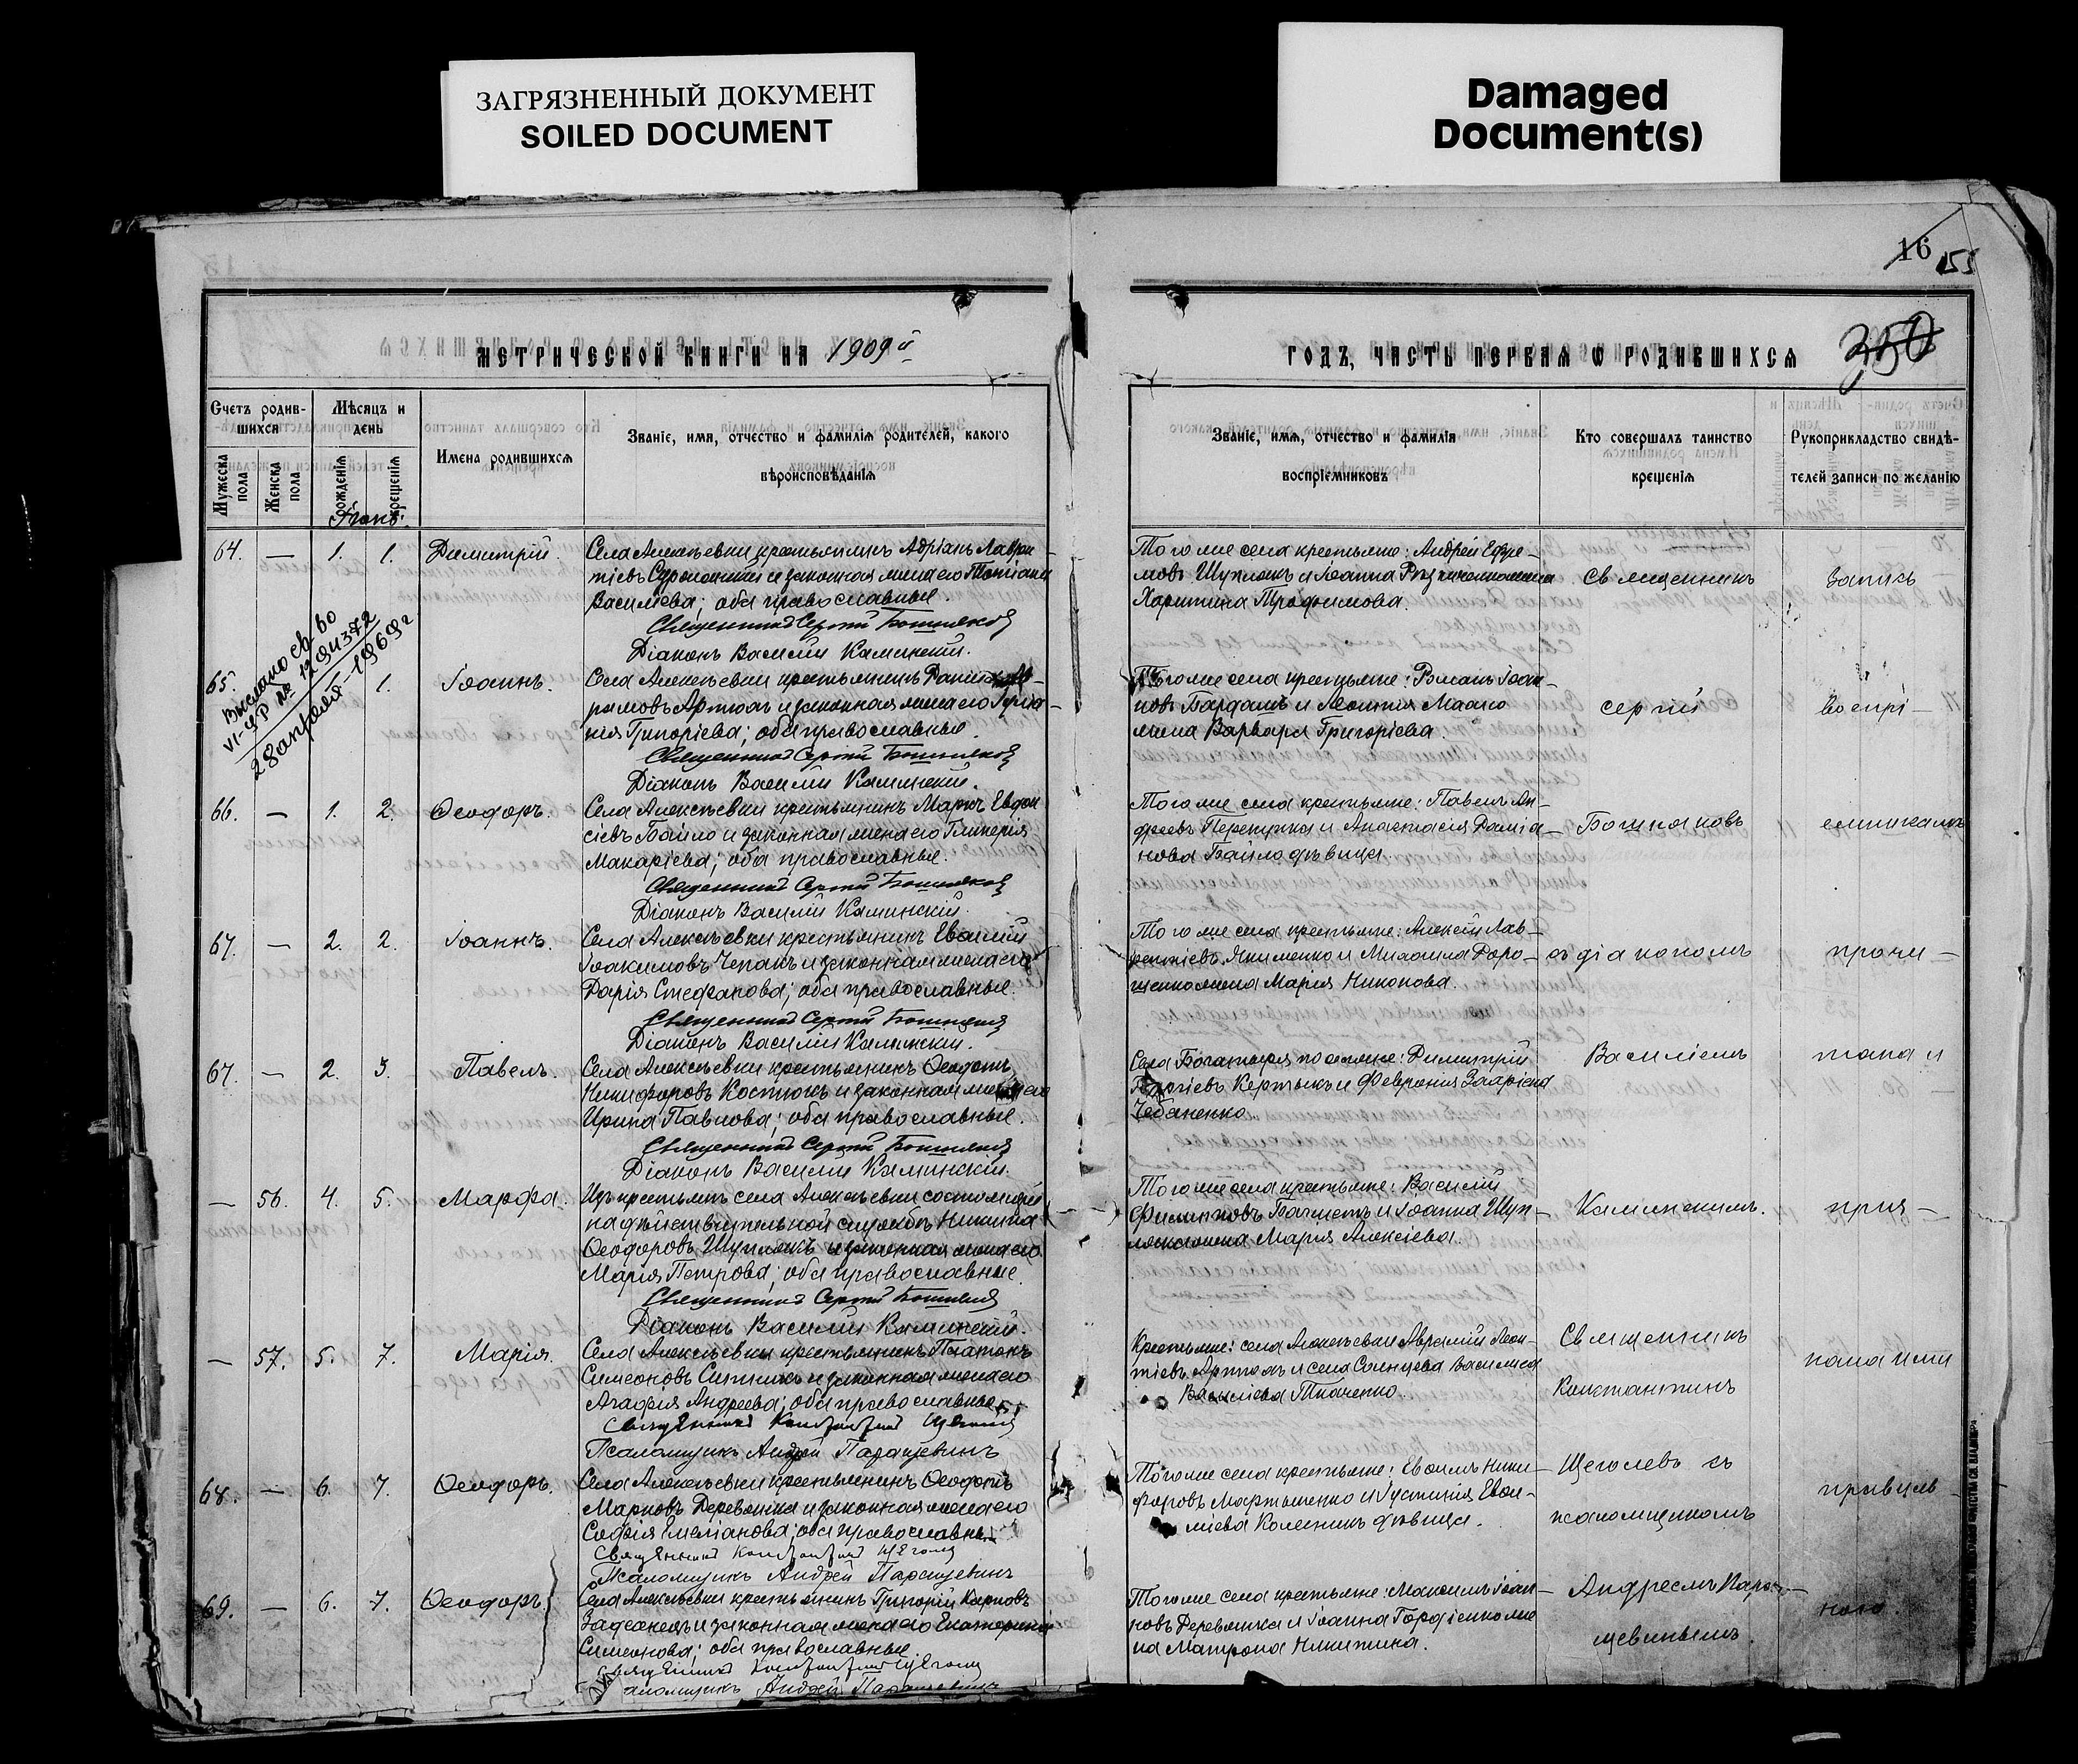 ЗАГРЯЗНЕННЫЙ ДОКУМЕНТ
SOILED DOCUMENT
Damaged
Document(s)
16
155
350
МЕТРИЧЕСКОЙ КНИГИ НА 1909й
ГОДЪ, ЧАСТЬ ПЕРВАЯ Ѡ РОДИВШИХСЯ
Счетъ родив-
шихся
Мѣсяцъ и
день
Мужеска
пола
Женска
пола
рожденія
крещенія
Имена родившихся
Званіе, имя, отчество и фамилія родителей, какого
вѣроисповѣданія
Званіе, имя, отчество и фамилія
воспріемниковъ
Кто совершалъ таинство
крещенія
Рукоприкладство свидѣ-
телей записи по желанію
64. — 1. 1. Димитрій.
Села Алексѣевки крестьянинъ Адріанъ Лаврен-
тіевъ и законная жена его Татіана
Василіева; оба православные.
Священникъ Сергій Бошняковъ
Діаконъ Василій Каминскій.
Того же села крестьяне: Андрей Ефре-
мовъ Шуплякъ и Іоанна жена
Харитина Трофимова.
Священникъ
Запись
Выслано св-во
VI-УР № 1294372
28 апреля-1969г
65. 1. 1. Іоаннъ.
Села Алексѣевки крестьянинъ Даніилъ Ав-
рамовъ Артюхъ и законная жена его
Григоріева; оба православные.
Священникъ Сергій Бошняковъ
Діаконъ Василій Каминскій.
Того же села крестьяне: Романъ Іоан-
новъ Бардашъ и Леонтія
жена Варвара Григоріева.
Сергій
воспрі-
66. — 1. 2. Ѳеодоръ.
Села Алексѣевки крестьянинъ Маркъ Евдок-
сіевъ Бойло и законная жена его Гликерія
Макаріева; оба православные.
Священникъ Сергій Бошняковъ
Діаконъ Василій Каминскій.
Того же села крестьяне: Павелъ Ан-
дреевъ и Анастасія Даміа-
нова Бойло дѣвица.
Бошняковъ
емникамъ
67. — 2. 2. Іоаннъ.
Села Алексѣевки крестьянинъ Евѳимій
Іоакимовъ Чепакъ и законная жена его
Дарія Стефанова; оба православные.
Священникъ Сергій Бошняковъ
Діаконъ Василій Каминскій.
Того же села крестьяне: Алексій Лав-
рентіевъ Якименко и Михаила Доро-
щенко жена Марія Никонова.
съ діакономъ
прочи-
67. — 2. 3. Павелъ.
Села Алексѣевки крестьянинъ Ѳеодотъ
Никифоровъ Костюкъ и законная жена его
Ирина Павлова; оба православные.
Священникъ Сергій Бошняковъ
Діаконъ Василій Каминскій.
Села Богатыря поселяне: Димитрій
Георгіевъ и Февронія Захаріева
Чебаненко.
Василіемъ
тана и
— 56. 4. 5. Марѳа.
Изъ крестьянъ села Алексѣевки состоящій
на дѣйствительной службѣ Никита
Ѳеодоровъ Шуплякъ и законная жена его
Марія Петрова; оба православные.
Священникъ Сергій Бошняковъ
Діаконъ Василій Каминскій.
Того же села крестьяне: Василій
Филипповъ и Іоанна Шуп-
ляка жена Марія Алексіева.
Каминскимъ.
прия-
— 57. 5. 7. Марія.
Села Алексѣевки крестьянинъ Платонъ
Симеоновъ Ситникъ и законная жена его
Агафія Андреева; оба православные.
Священникъ Константинъ Щеголевъ
Псаломщикъ Андрей Паращевинъ
Крестьяне: села Алексѣевки Аврамій Леон-
тіевъ Артюхъ и села Солнцева Василиса
Василіева Ткаченко.
Священникъ
Константинъ
тана ими
68. — 6. 7. Ѳеодоръ.
Села Алексѣевки крестьянинъ Ѳеодотъ
Марковъ Деревянка и законная жена его
Софія Емеліанова; оба православны.
Священникъ Константинъ Щеголевъ
Псаломщикъ Андрей Паращевинъ
Того же села крестьяне: Евѳимъ Ники-
форовъ Мартыненко и Іустинія Евѳи-
міева Колесникъ дѣвица.
Щеголевъ съ
псаломщикомъ
правиль-
69. — 6. 7. Ѳеодоръ.
Села Алексѣевки крестьянинъ Григорій Карповъ
и законная жена его Екатерина
Симеонова; оба православные.
Священникъ Константинъ Щеголевъ
Псаломщикъ Андрей Паращевинъ
Того же села крестьяне: Максимъ Іоан-
новъ Деревянка и Іоанна Гордіенко же-
на Матрона Никитина.
Андреемъ Пара-
щевинымъ.
ною